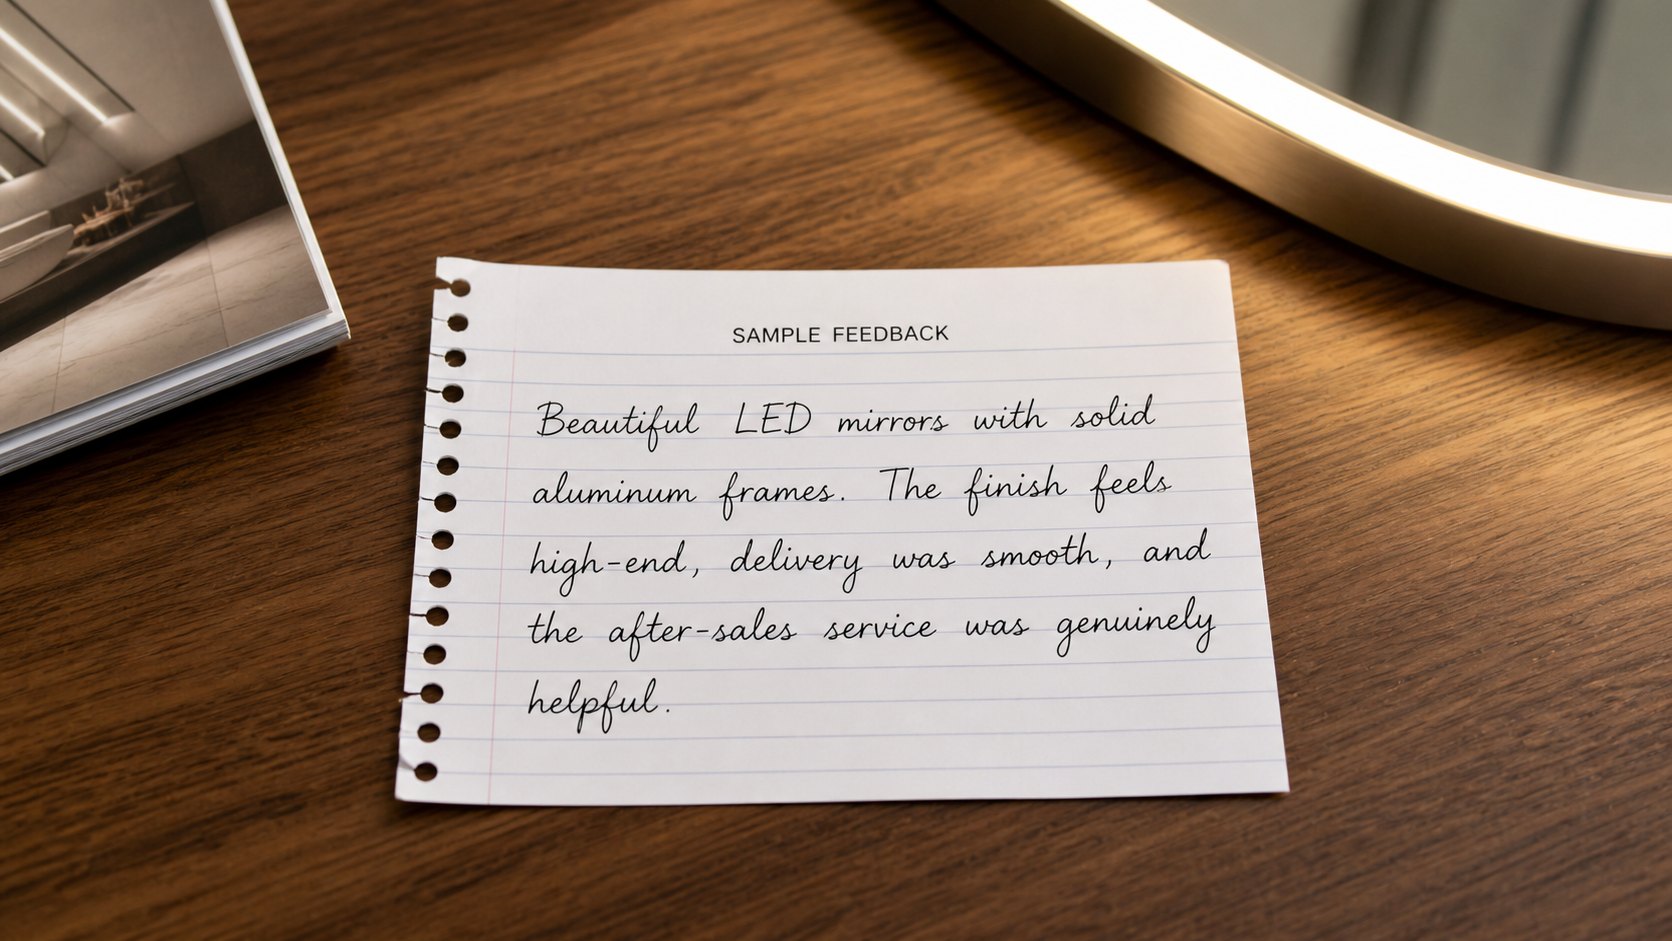 SAMPLE FEEDBACK
Beautiful LED mirrors with solid
aluminum frames. The finish feels
high-end, delivery was smooth, and
the after-sales service was genuinely
helpful.